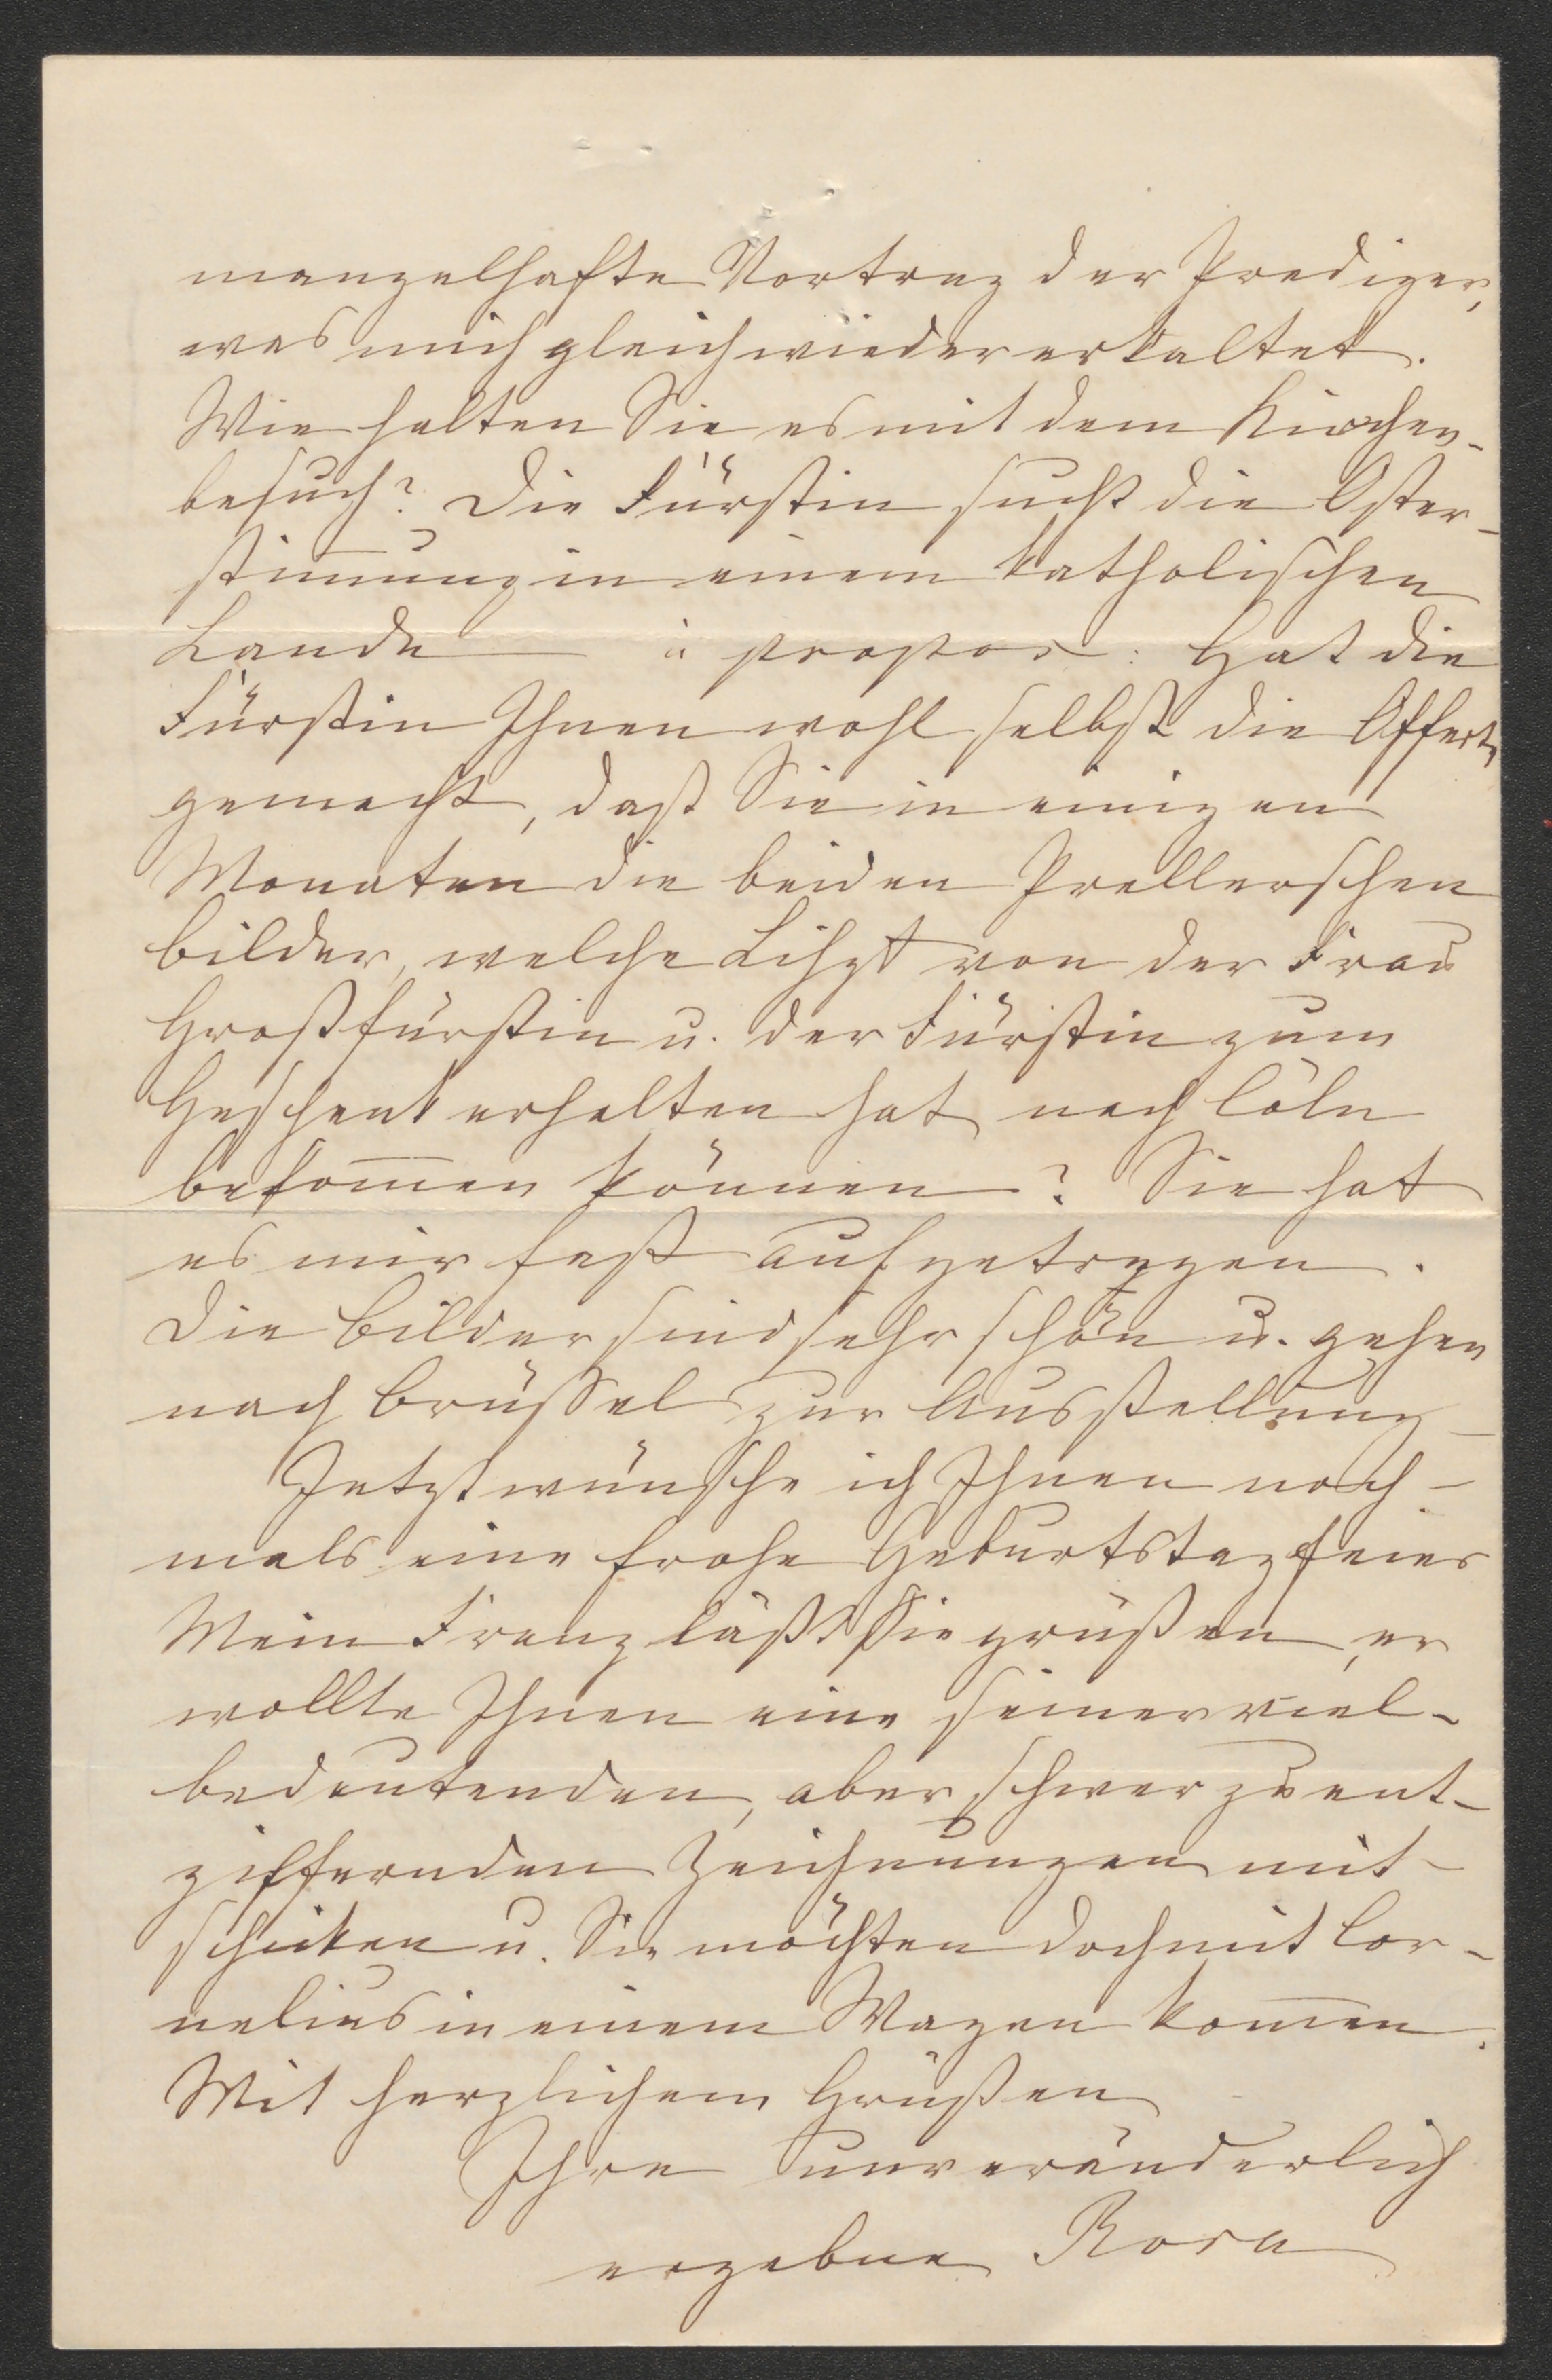 mangelhafte Vortrag der Prediger,
was mich gleich wieder erkaltet.
Wie halten Sie es mit dem Kirchen-
besuch? Die Fürstin sucht die Oster-
stimmung in einem katholischen
Lande — à propos: Hat die
Fürstin Ihnen wohl selbst die Offerte
gemacht, daß Sie in einigen
Monaten die beiden Prellerschen
Bilder, welche Lißzt von der Frau
Großfürstin u. der Fürstin zum
Geschenk erhalten hat nach Cöln
bekom̅en können? Sie hat
es mir fest aufgetragen.
Die Bilder sind sehr schön u. gehen
nach Brüssel zur Ausstellung –
Jetzt wünsche ich Ihnen noch-
mals eine frohe Geburtstagfeier
Mein Franz läßt Sie grüßen, er
wollte Ihnen eine seiner viel-
bedeutenden, aber schwer zu ent-
ziffernden Zeichnungen mit-
schicken u. Sie möchten doch mit Cor-
nelius in einem Wagen kom̅en.
Mit herzlichem Grüßen
Ihre unveränderlich
ergebne Rosa